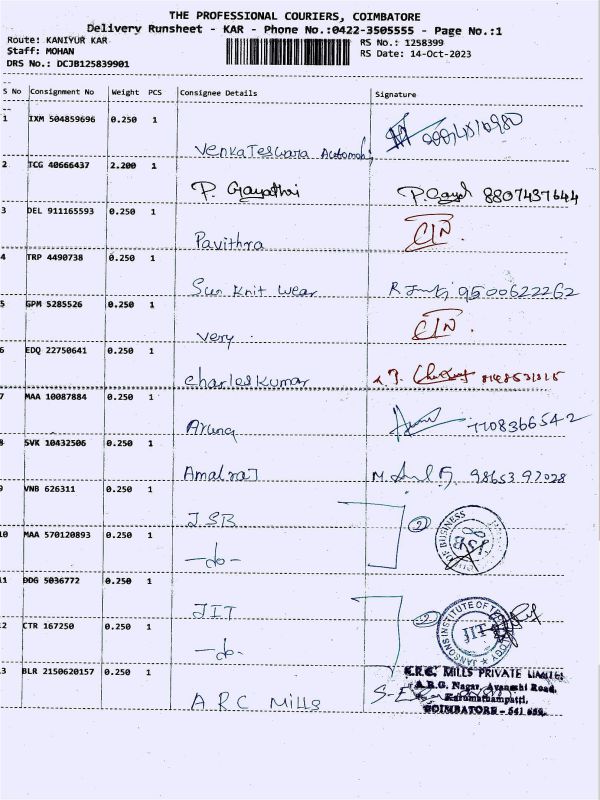 THE PROFESSIONAL COURIERS, COIMBATORE
Delivery Runsheet - KAR - Phone No.:0422-3505555 - Page No.:1
Route: KANIYUR KAR
RS No.: 1258399
Staff: MOHAN
RS Date: 14-Oct-2023
DRS No.: DCJB125839901
S No Consignment No Weight PCS Consignee Details Signature
1 IXM 504859696 0.250 1
Venkateswara
2 TCG 40666437 2.200 1
P. Gayathri P. Gayat 8807437644
3 DEL 911165593 0.250 1
Pavithra
4 TRP 4490738 0.250 1
Sun Knit Wear 9500622262
5 GPM 5285526 0.250 1
Very
6 EDQ 22750641 0.250 1
charleskumar
7 MAA 10087884 0.250 1
Aruna 7708366542
8 SVK 10432506 0.250 1
Amalraj 9865397028
9 VNB 626311 0.250 1
JSB 2
BUSINESS
JSB
10 MAA 570120893 0.250 1
-do-
11 DDG 5036772 0.250 1
JIT 2
JANSONS INSTITUTE OF TECHNOLOGY
JIT
2 CTR 167250 0.250 1
-do-
3 BLR 2150620157 0.250 1
A R C Mills
MILLS PRIVATE LIMITED
Nagar, Avanashi Road,
Karumathampatti,
COIMBATORE - 641 659.